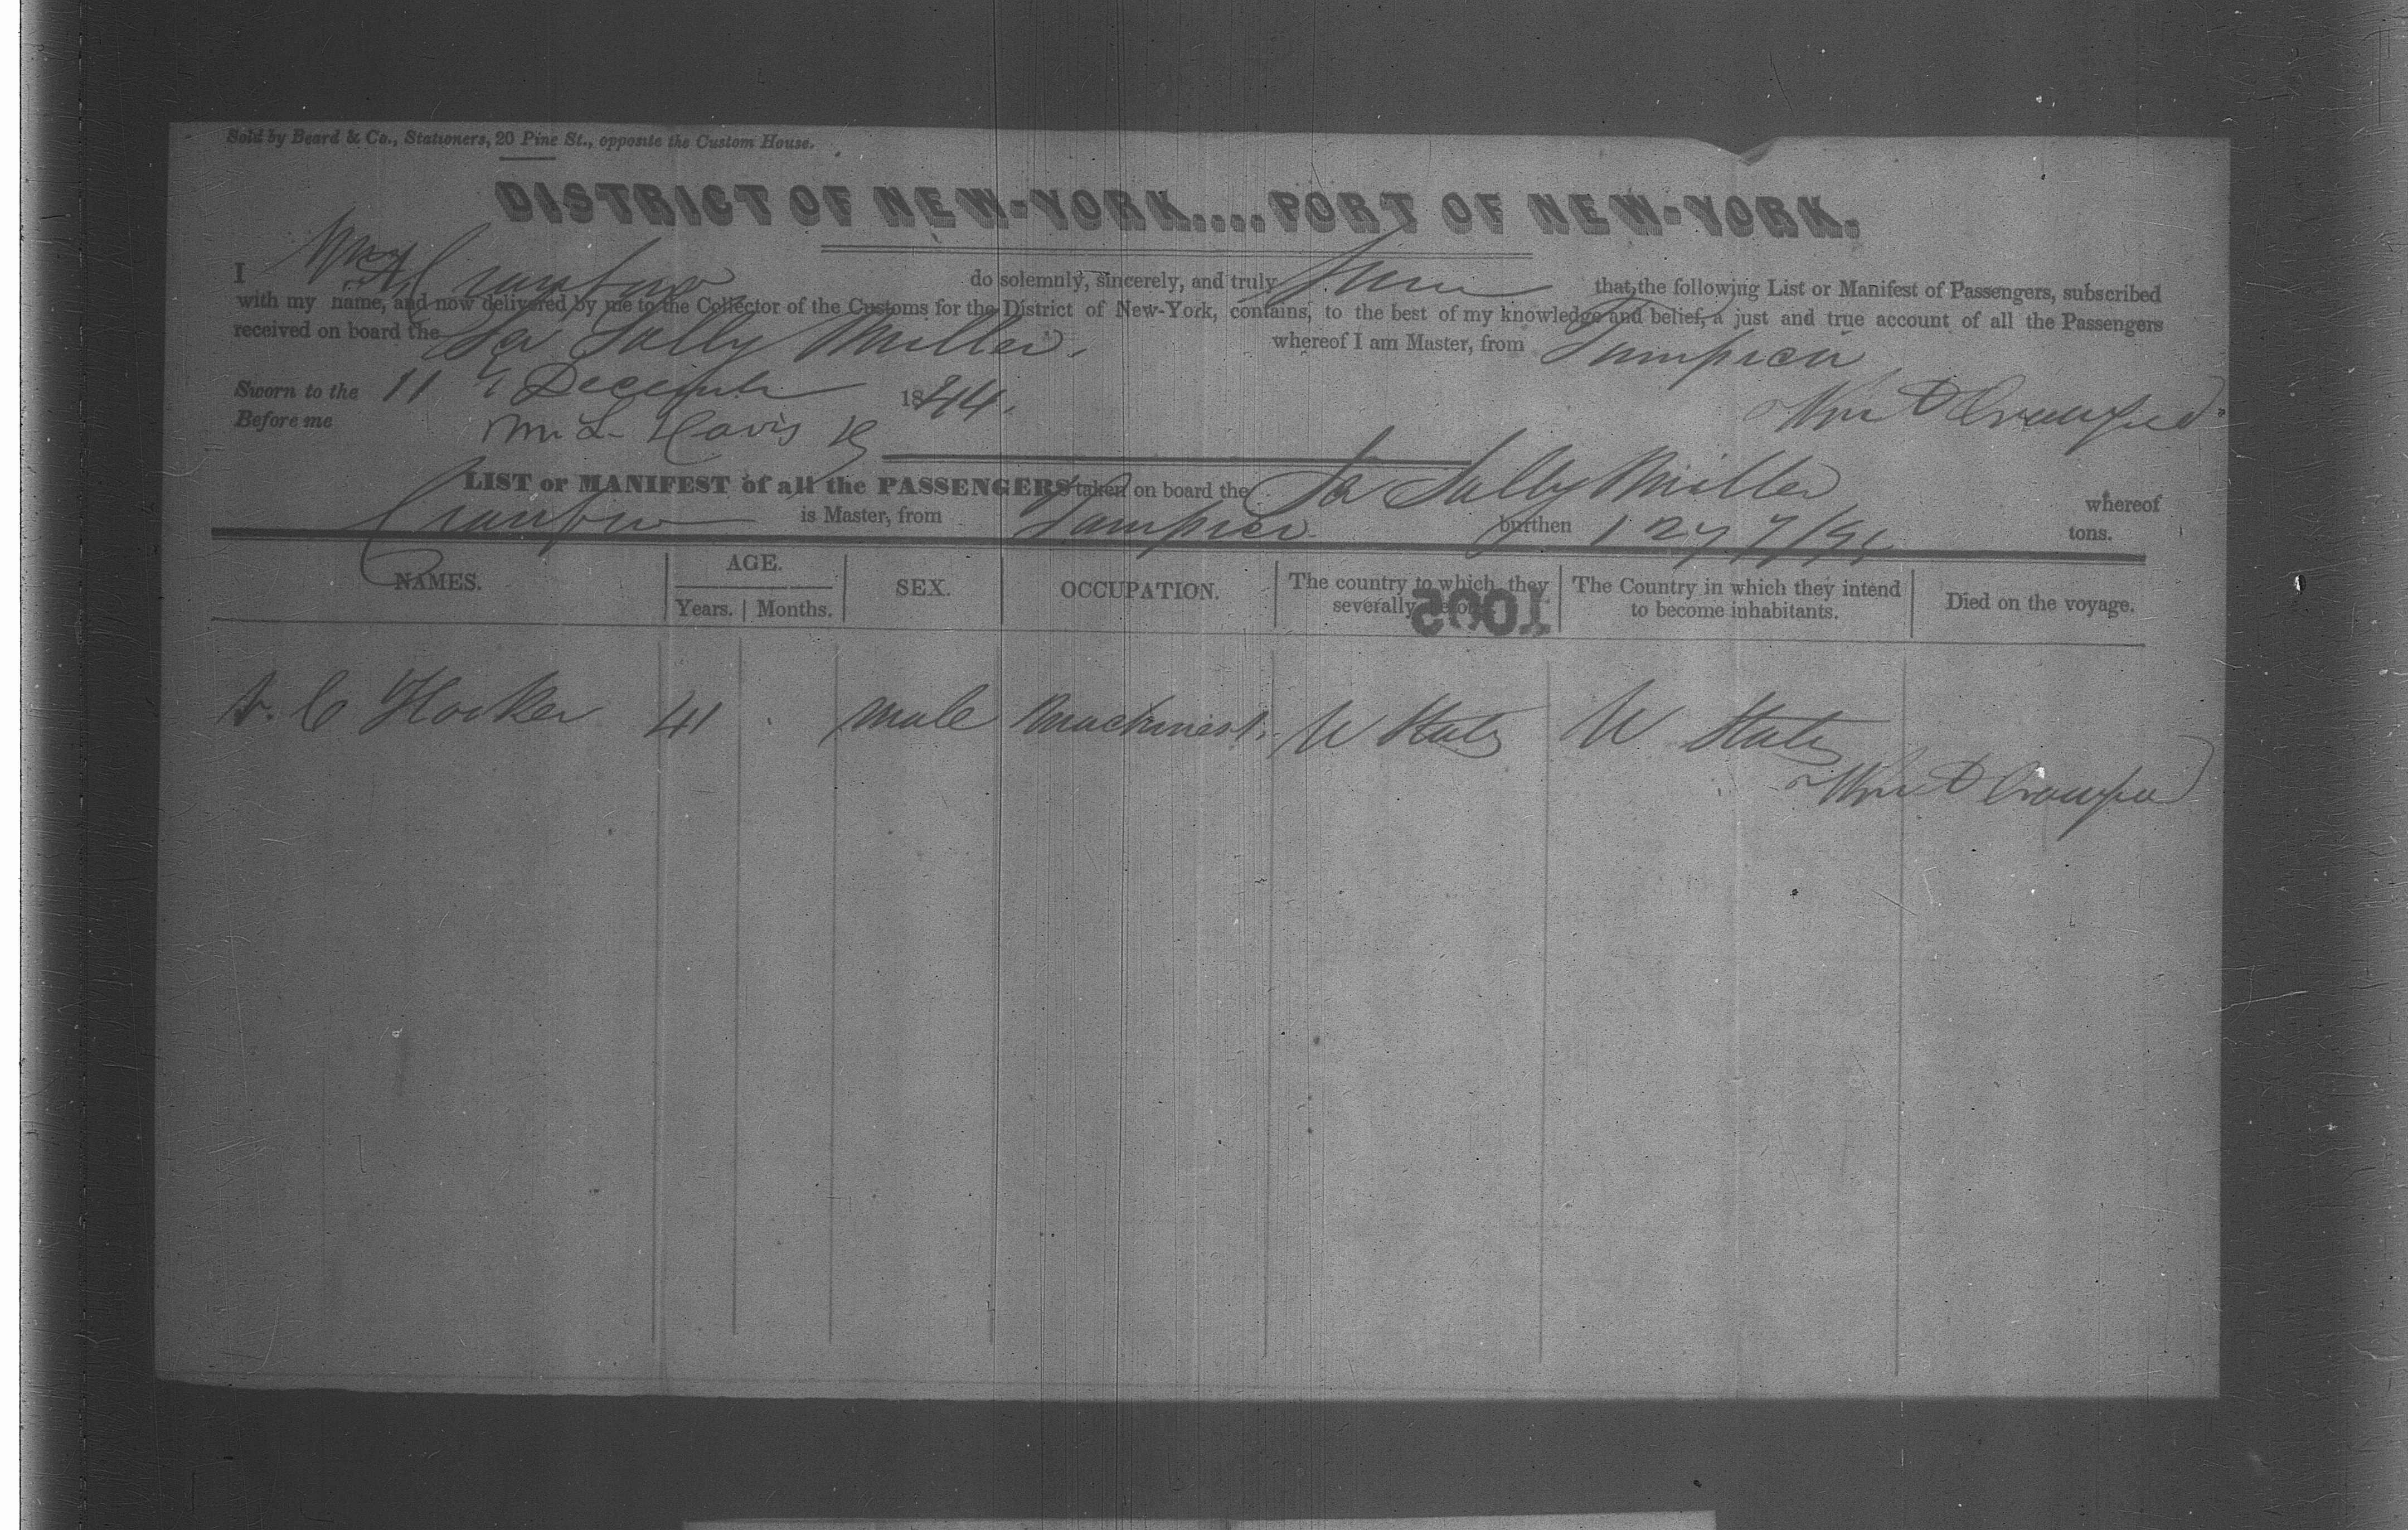 Sold by Beard & Co., Stationers, 20 Pine St., opposite the Custom House.
DISTRICT OF NEW-YORK....PORT OF NEW-YORK.
I Wm Crawford do solemnly, sincerely, and truly that the following List or Manifest of Passengers, subscribed
with my name, and now delivered by me to the Collector of the Customs for the District of New-York, contains, to the best of my knowledge and belief, a just and true account of all the Passengers
received on board the Sally Miller. whereof I am Master, from Tampico
Sworn to the 11 December 1844.
Wm D Crawford
Before me M. L. Davis
LIST or MANIFEST of all the PASSENGERS taken on board the Sally Miller whereof
Crawford is Master, from Tampico burthen 127 tons.
NAMES. AGE. Years. Months. SEX. OCCUPATION. The country to which they severally belong. The Country in which they intend to become inhabitants. Died on the voyage.
1005
C Hooker 41 male machinest. U States U States
Wm D Crawford